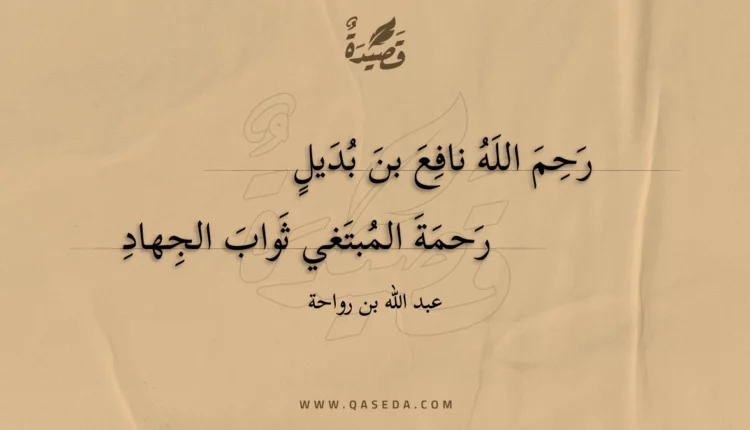 قَصِيدَةٌ
رَحِمَ اللَهُ نافِعَ بنَ بُدَيلٍ
رَحمَةَ المُبتَغي ثَوابَ الجِهادِ
عبد الله بن رواحة
WWW.QASEDA.COM